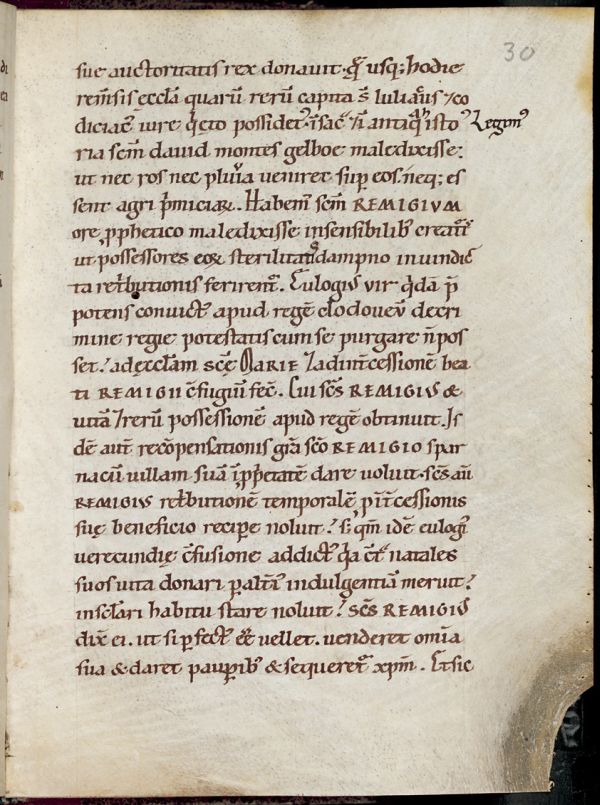 30
sue auctoritatis rex donavit. q̄ usq; hodie
rem̄sis eccl̄a quarū rerū capita s̄ iuliac̄us ⁊ co
diciac̄ iure q̇eto possidet
Legim᾽
ria sc̄m david montes gelboe maledixisse:
ut nec ros nec pluvia veniret sup̄ eos. neq; es
sent agri p̄miciaꝝ. Habem᾽ sc̄m REMIGIVM
ore ꝓphetico maledixisse insensibilib᾽ creat̄is
ut possessores eoꝝ sterilitatis dampno in vindic
ta ret̄butionis ferirent᾽. Eulogius vir q̇dā p̄
potens convict᾽ apud regē clodoveū de cri
mine regie potestatis cum se purgare n̄ pos
set. ad ęccl̄am sc̄ę MARIE ⁊ ad int̄cessionē bea
ti REMIGII c̄fugiū fec̄. Cui sc̄s REMIGIUS &
vitā ⁊ rerū possessionē apud regē obtinuit. Is
dē aut̄ recōpensationis gr̄a sc̄o REMIGIO spar
nacū villam suā ī ꝓprietatē dare voluit. sc̄s aū
REMIGIUS ret̄butionē temporalē ꝓ īt̄cessionis
suę beneficio recipe noluit. s; qm̄ idē eulogi᾽
verecundię c̄fusione addict᾽ q̇a c̄t̄ natales
suos vita donari ꝑ alt̄i᾽ indulgentiā meruit.
in sc̄lari habitu stare noluit. sc̄s REMIGIUS
dix̄ ei. ut si ꝑfect᾽ ēē vellet. venderet om̄ia
sua & daret pauꝑib᾽ & sequeret᾽ xp̄m. Et sic